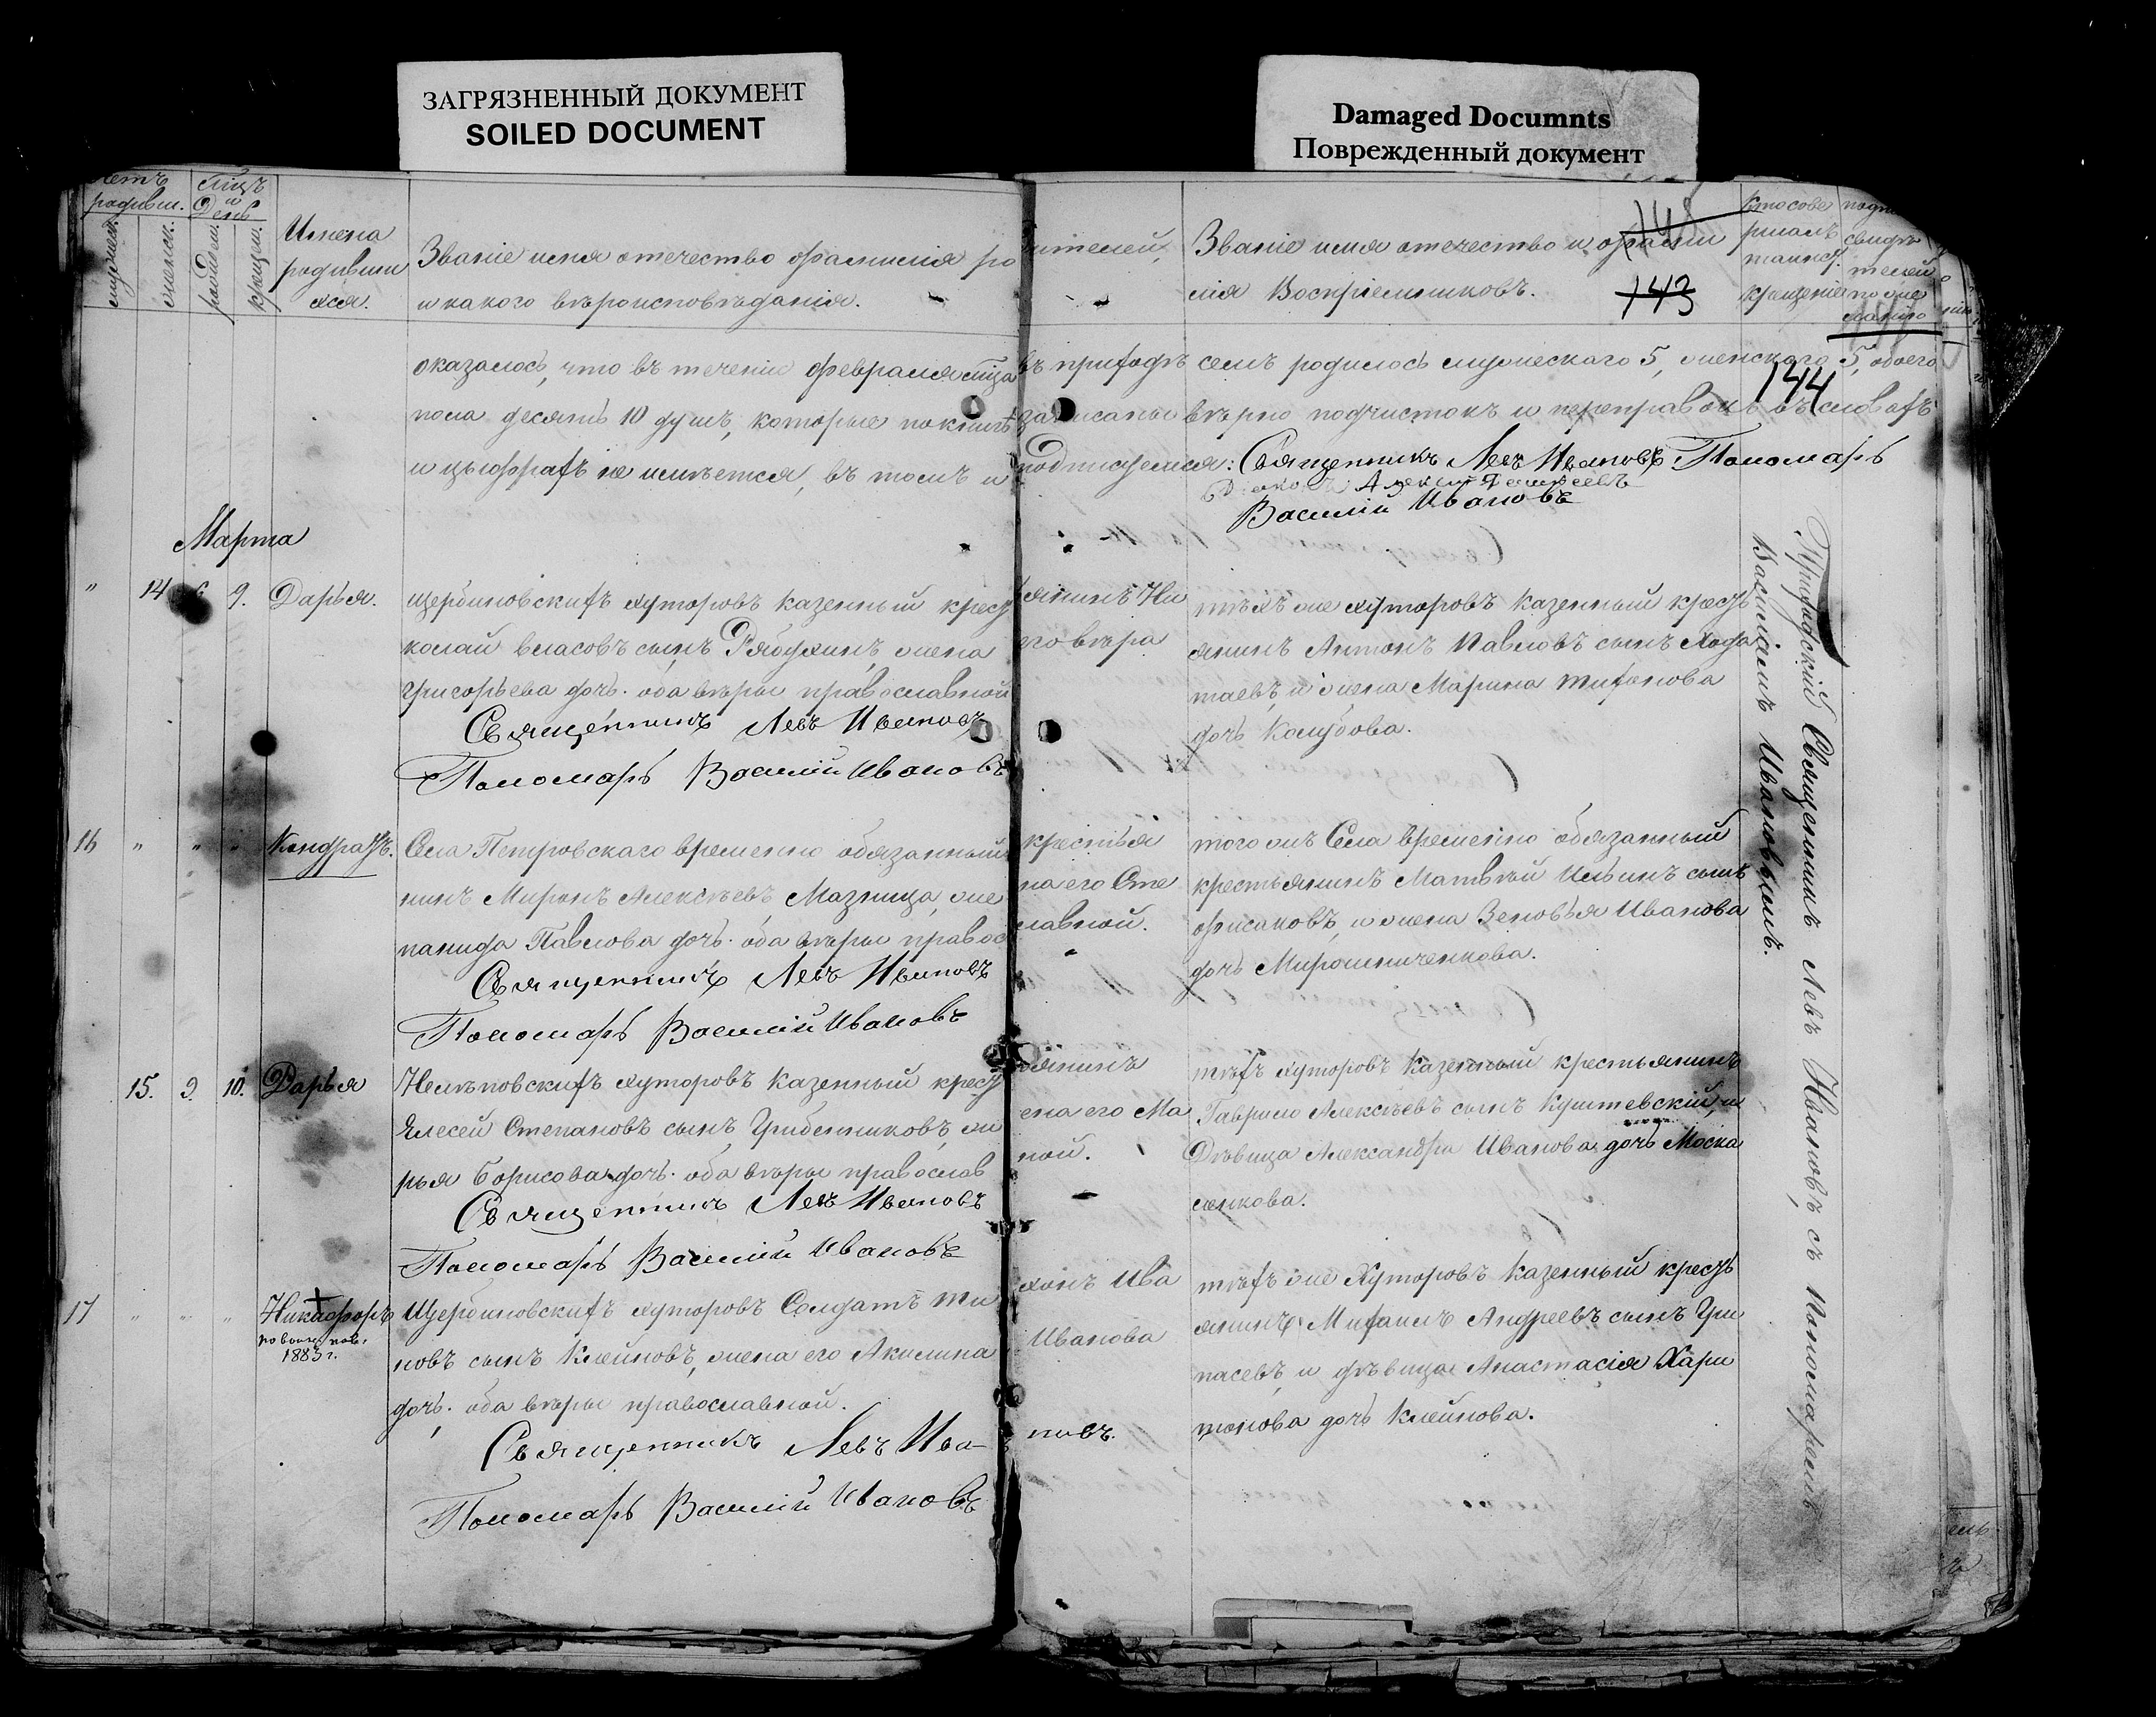 ЗАГРЯЗНЕННЫЙ ДОКУМЕНТ
SOILED DOCUMENT
Damaged Documnts
Поврежденный документ
родивш.
мужеск.
женск.
Мцъ и День
рожден.
крещен.
Имена
родивши
хся.
Званіе имя отечество фамилія ро
дителей,
и какого вѣроисповѣданія.
Званіе имя отечество и фами
лія Воспріемниковъ.
143
Кто сове
ршалъ
таинст.
крещенія
свидѣ
телей
по же
ланію
144
оказалось, что въ теченіи февраля мца въ приходѣ семъ родилось мужескаго 5, женскаго 5, обоего
пола десять 10 душъ, которые по книгѣ записаны вѣрно подчистокъ и переправокъ въ словахъ
и цыфрахъ не имѣется, въ томъ и подписуемся: Священникъ Левъ Ивановъ Пономарь
Василій Ивановъ
Марта
" 14 9. Дарья.
Щербиновскихъ хуторовъ казенный крест
янинъ Ни
колай Власовъ сынъ Рябухинъ, жена
его вѣра
Григорьева дочь. оба вѣры православной
Священникъ Левъ Ивановъ
Пономарь Василій Ивановъ
тѣхъ же хуторовъ казенный крестъ
янинъ Антонъ Павловъ сынъ Хода
таевъ, и жена Марина Тихонова
дочь Колубова.
16 " " " Кондратъ.
Села Петровскаго временно обязанный
крестья
нинъ Миронъ Алексѣевъ Мазница, же
на его Сте
панида Павлова дочь. оба вѣры правос
лавной.
Священникъ Левъ Ивановъ
Пономарь Василій Ивановъ
того жъ Села временно обязанный
крестьянинъ Матвѣй Ильинъ сынъ
Фисаковъ, и жена Зеновья Иванова
дочь Мирошниченкова.
15. 9. 10. Дарья
хуторовъ казенный крест
ьянинъ
Елесей Степановъ сынъ Гребенниковъ, ж
ена его Ма
рья Борисова дочь. оба вѣры православ
ной.
Священникъ Левъ Ивановъ
Пономарь Василій Ивановъ
тѣхъ хуторовъ казенный крестьянинъ
Гаврило Алексѣевъ сынъ Кущевскій, и
Дѣвица Александра Иванова дочь Моска
ленкова.
17 " " " Никифоръ
1883 г.
Щербиновскихъ хуторовъ Солдатъ Ти
хонъ Ива
новъ сынъ Клейновъ, жена его Акилина
Иванова
дочь. оба вѣры православной.
Священникъ Левъ Ива-
новъ.
Пономарь Василій Ивановъ
тѣхъ же Хуторовъ казенный крестъ
янинъ Михаилъ Андреевъ сынъ Гри
насевъ, и дѣвица Анастасія Хари
тонова дочь Клейнова.
Приходскій Священникъ Левъ Ивановъ, съ Пономаремъ
Василіемъ Ивановымъ.